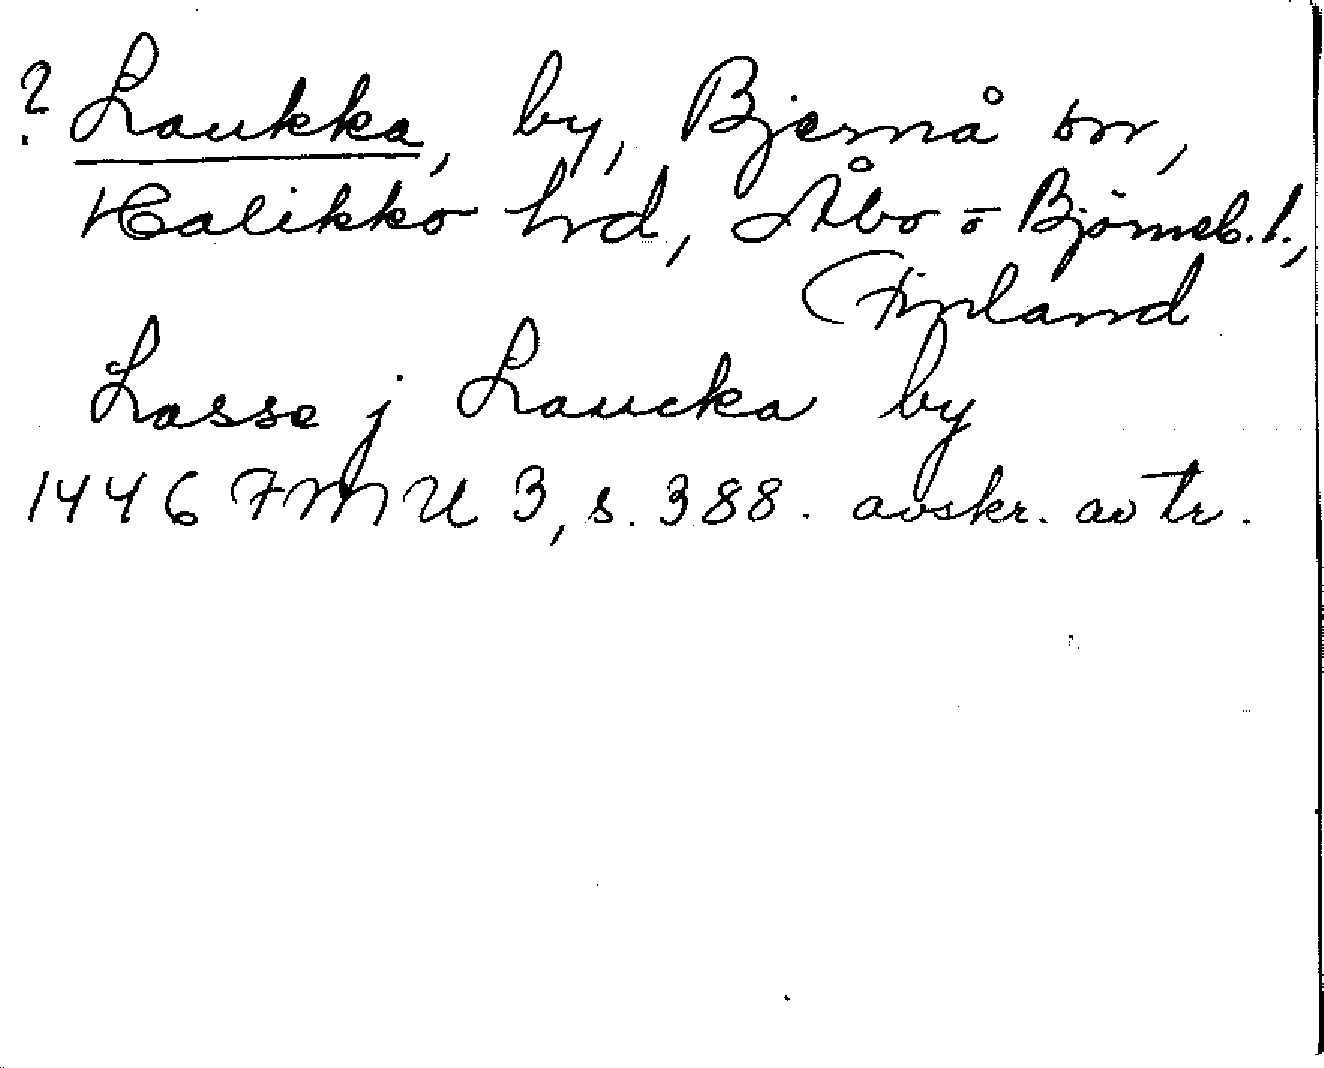 ? Laukka, by, Bjernå sn,
Halikko hd, Åbo o Björneb. l.,
Finland
Lasse j Laucka by
1446 FMU 3, s. 388. avskr. av tr.